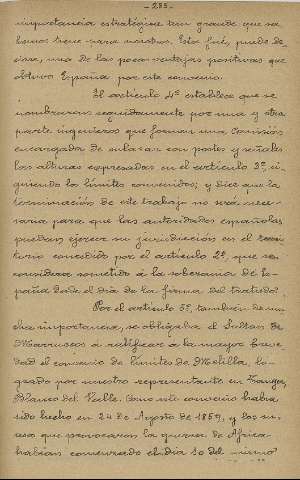 - 285 -
importancia estratégica tan grande que sa-
bemos tiene para nosotros. Esta fué, puede de-
cirse, una de las pocas ventajas positivas que
obtuvo España por este convenio.
El artículo 4º establece que se
nombraran seguidamente por una y otra
parte ingenieros que formen una Comisión
encargada de enlazar con postes y señales
las alturas expresadas en el artículo 3º, si-
guiendo los límites convenidos; y dice que la
terminación de este trabajo no será nece-
saria para que las autoridades españolas
puedan ejercer su jurisdicción en el terri-
torio concedido por el artículo 2º, que se
considera sometido á la soberania de Es-
paña desde el dia de la firma del tratado.
Por el artículo 5º, tambien de mu-
cha importancia, se obligaba el Sultan de
Marruecos á ratificar á la mayor breve-
dad el convenio de límites de Melilla, lo-
grado por nuestro representante en Tanger,
Blanco del Valle. Como este convenio habia
sido hecho en 24 de Agosto de 1859, y los su-
cesos que provocaron la guerra de Africa
habian comenzado el dia 10 del mismo